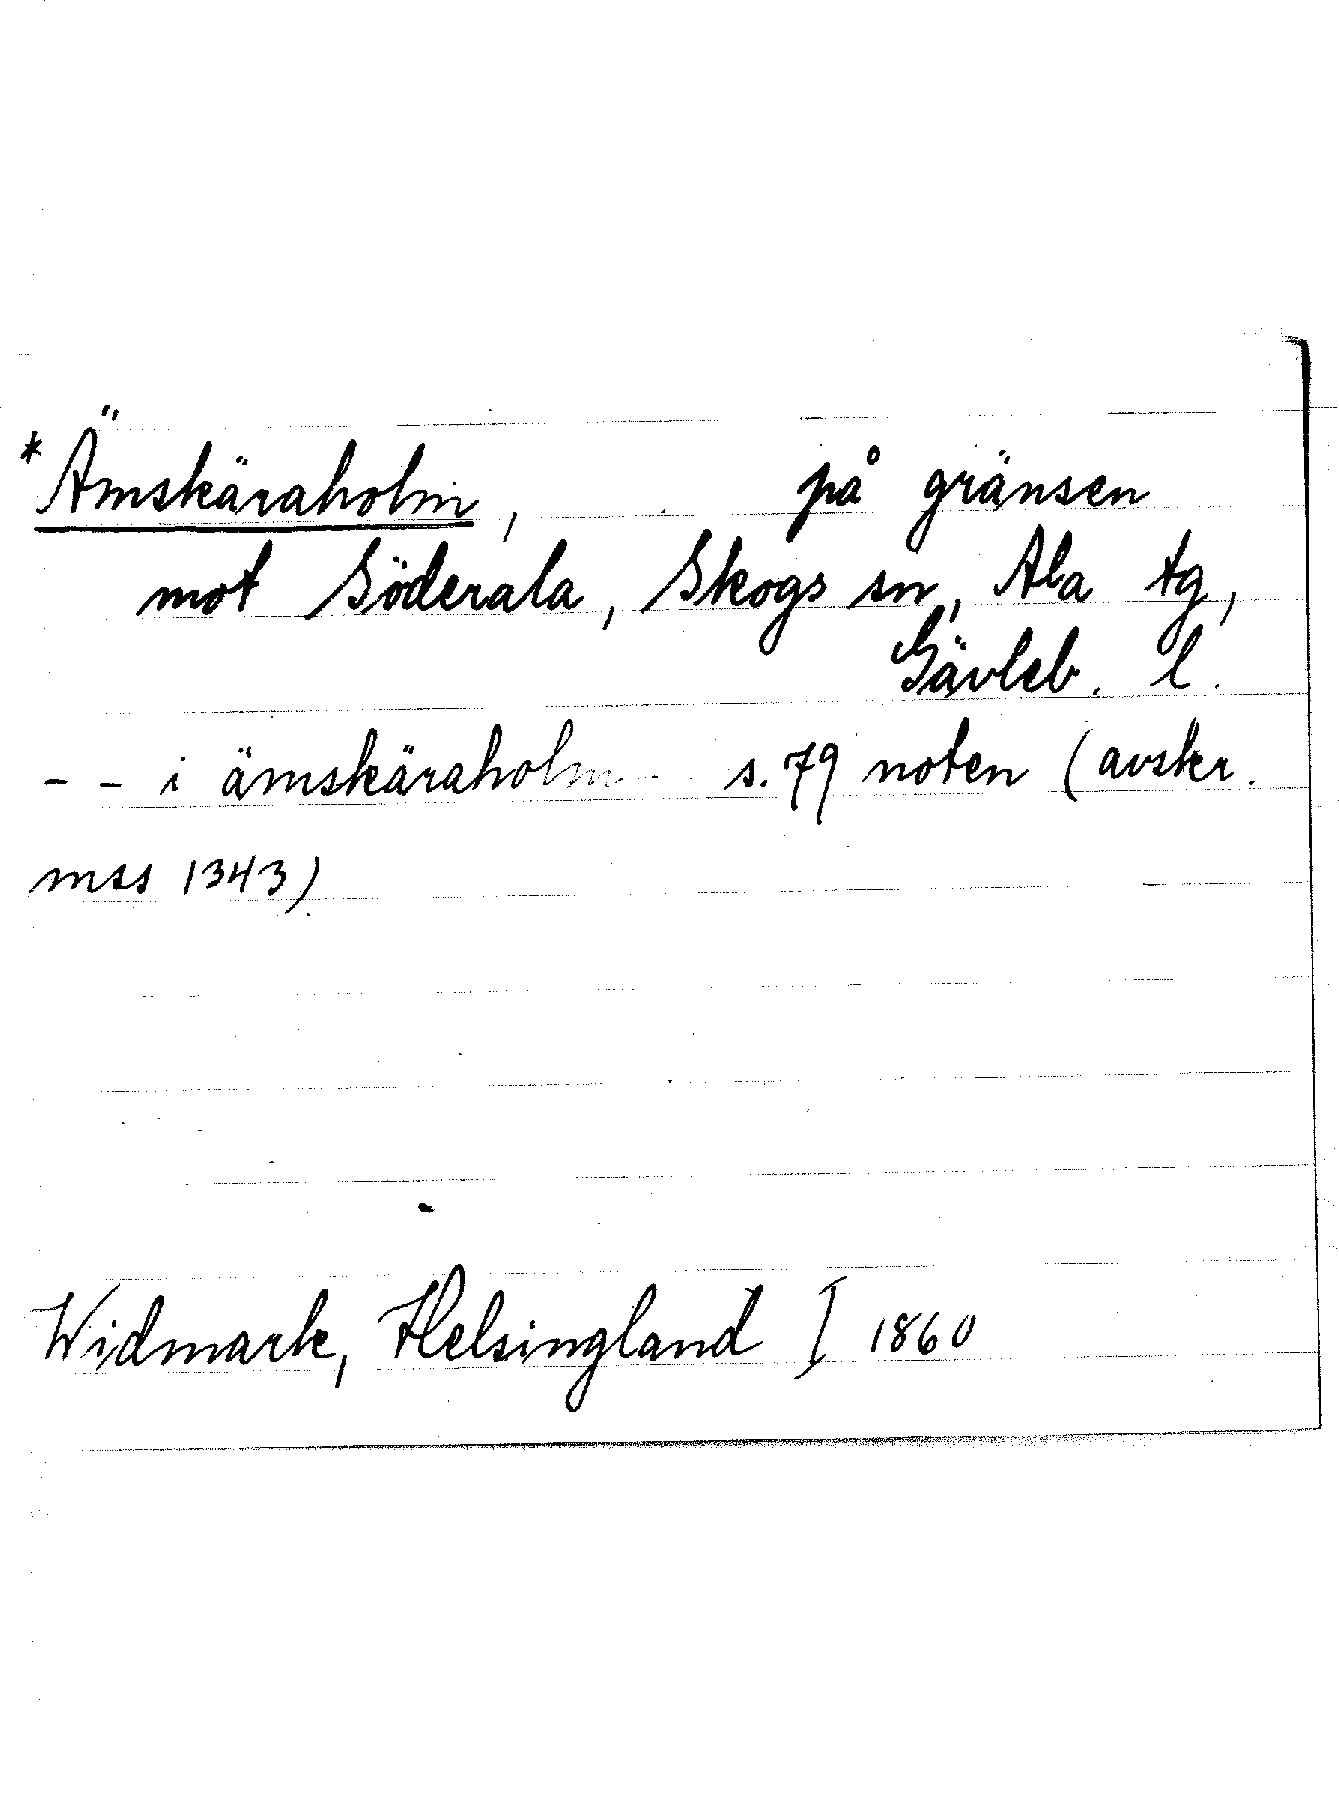 *Ämskäraholm, på gränsen
mot Söderala, Skogs sn, Ala tg,
Gävleb. l.
- - i ämskäraholm - s. 79 noten (avskr.
mss 1343)
Widmark, Helsingland I 1860